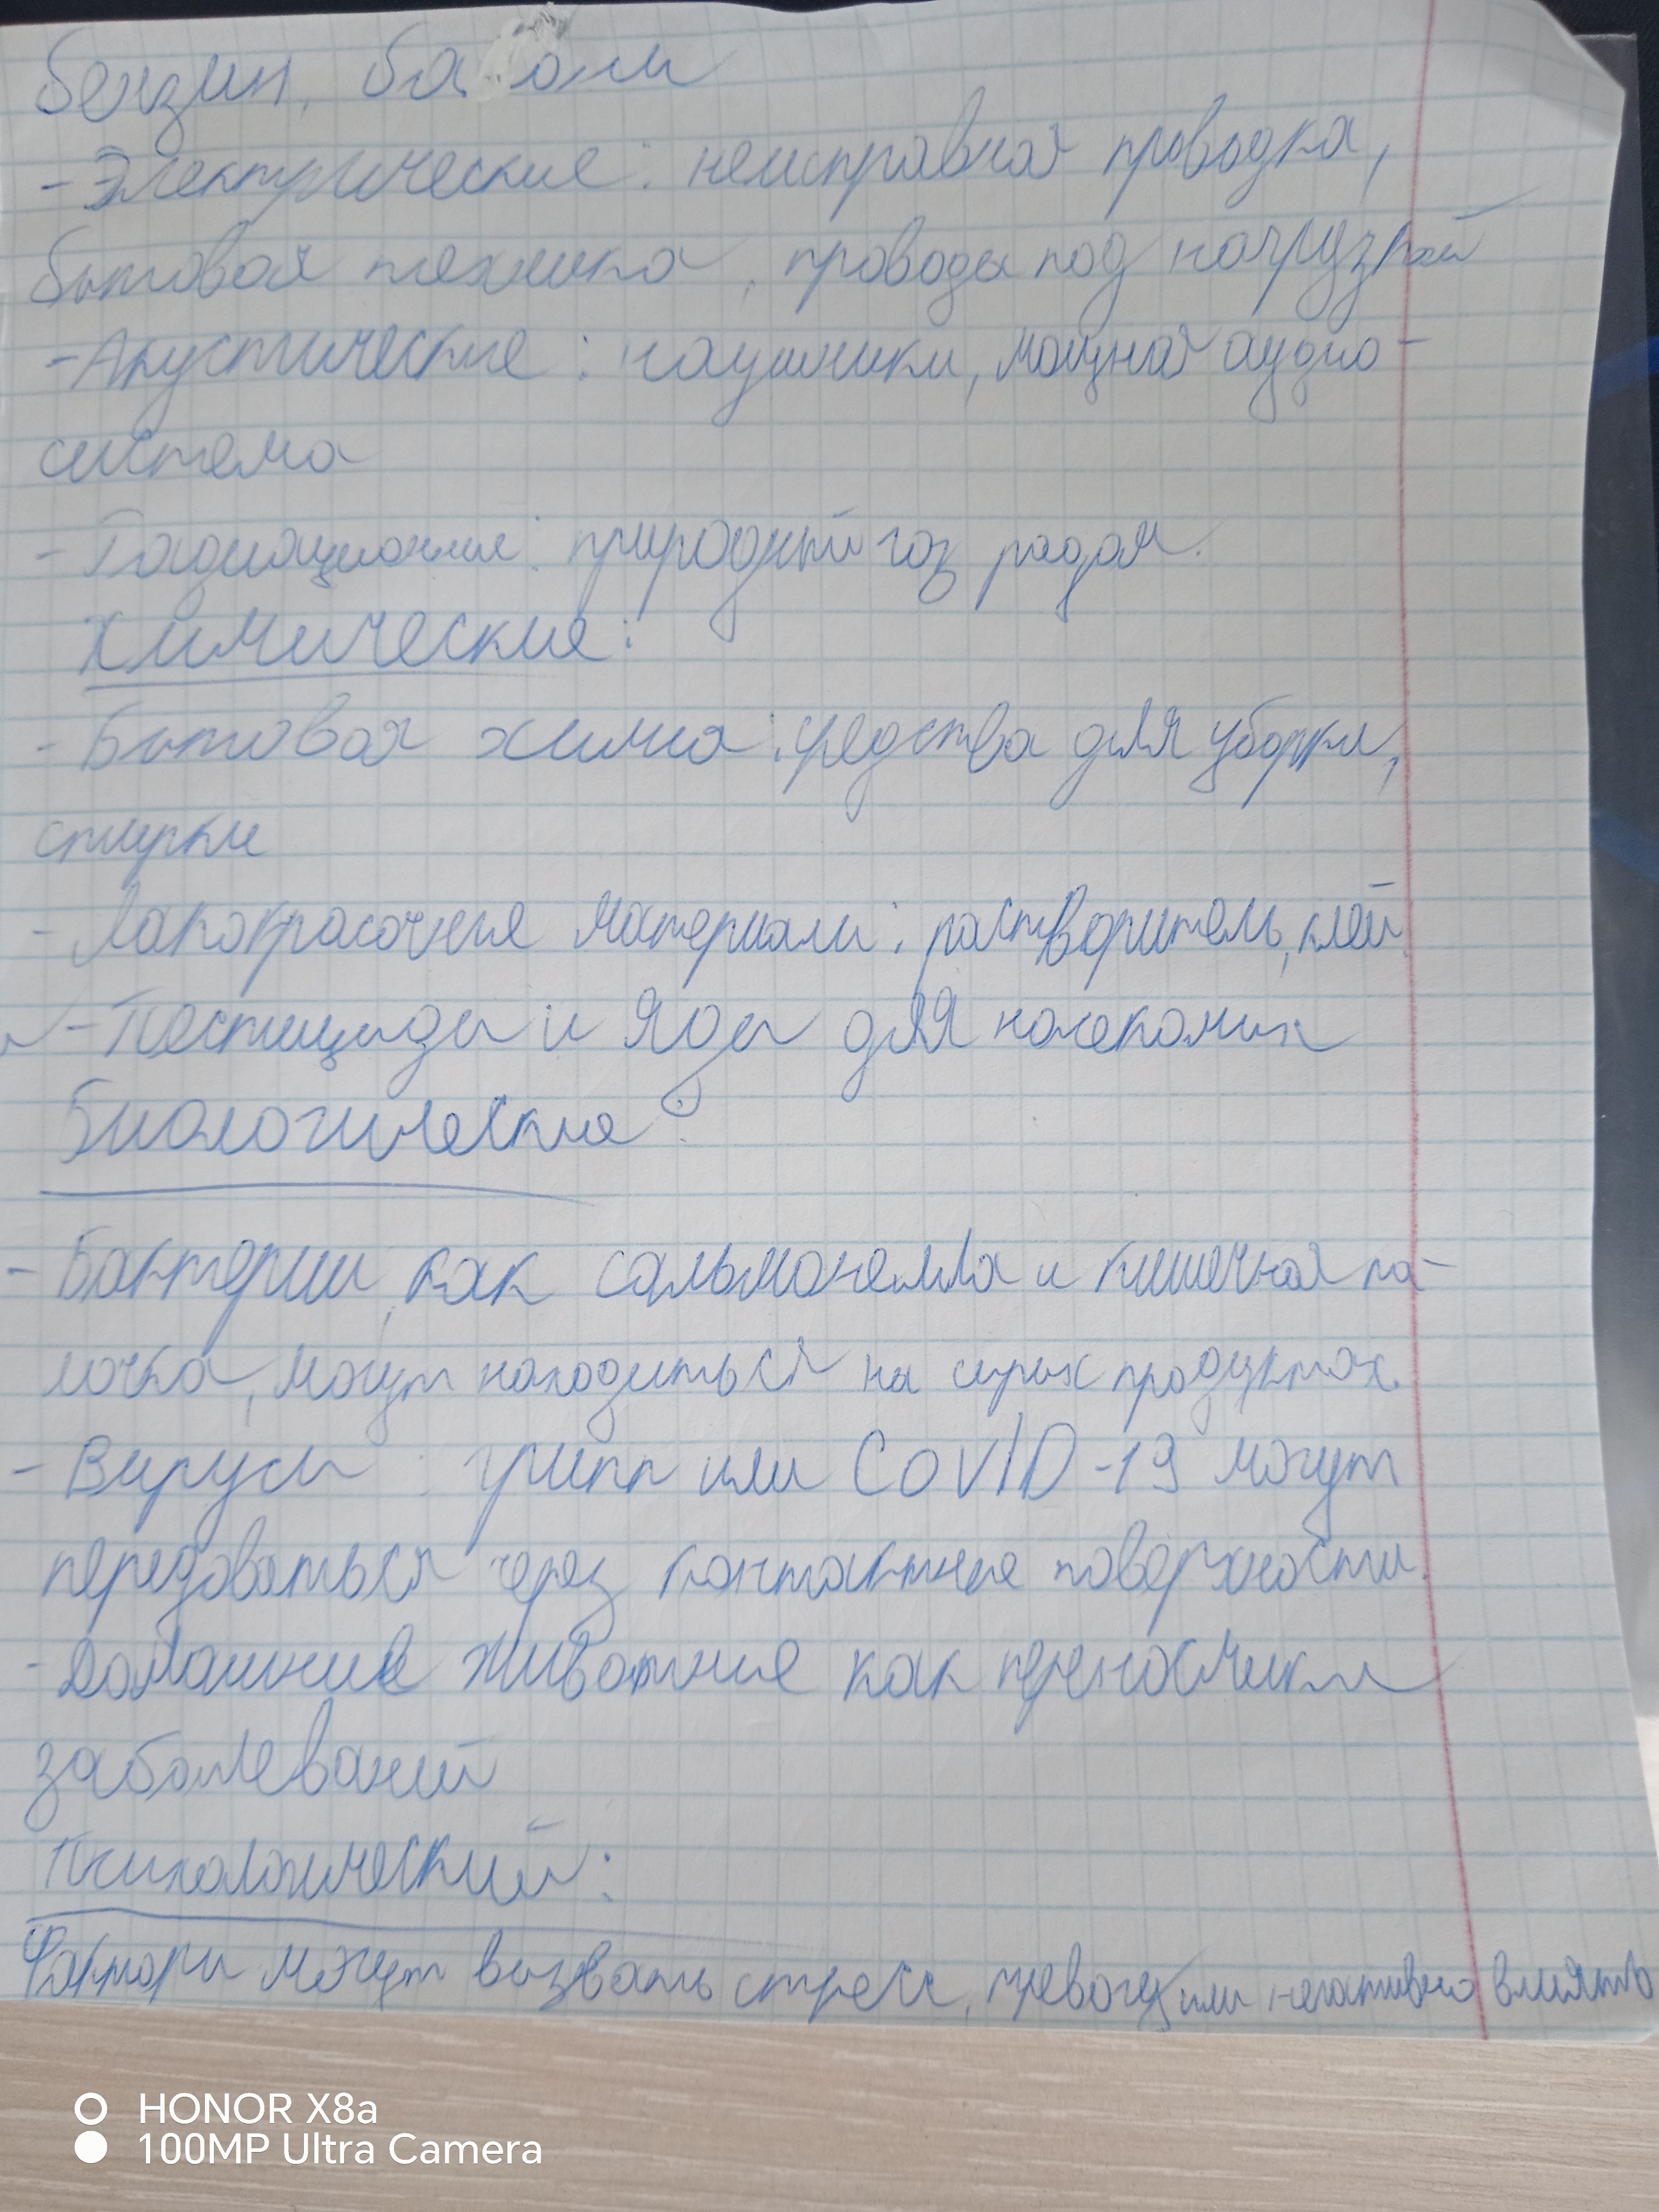 Бензин,
-Электрические: неисправная проводка,
бытовая техника, проводы под нагрузкой
-Акустические: наушники, мощная аудио-
система
-Радиационные: природный газ радон.
Химические:
-Бытовая химия: средства для уборки,
стирки
-Лакокрасочные материалы: растворитель, клей.
-Пестициды и яды для насекомых
Биологические:
-Бактерии, как сальмонелла и кишечная па-
лочка, могут находиться на сырых продуктах.
-Вирусы: грипп или COVID-19 могут
передаваться через контактные поверхности.
-Домашние животные как переносчики
заболеваний
Психологический:
Факторы могут вызвать стресс, тревогу или негативно влиять
HONOR X8a
100MP Ultra Camera